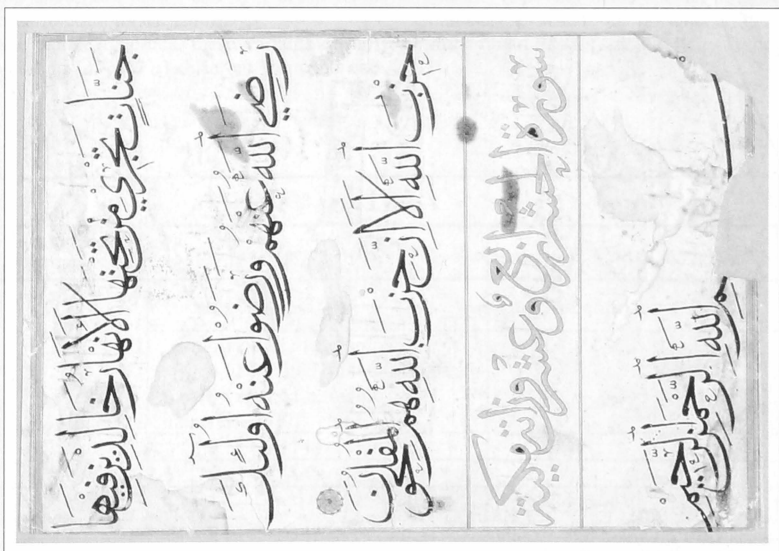 جَنَّاتٍ تَجْرِي مِنْ تَحْتِهَا الْأَنْهَارُ خَالِدِينَ فِيهَا
رَضِيَ اللَّهُ عَنْهُمْ وَرَضُوا عَنْهُ أُولَٰئِكَ
حِزْبُ اللَّهِ أَلَا إِنَّ حِزْبَ اللَّهِ هُمُ الْمُفْلِحُونَ
سورة الحشر اربع وعشرون اية مكية
بسم اللَّهِ الرَّحْمَٰنِ الرَّحِيمِ